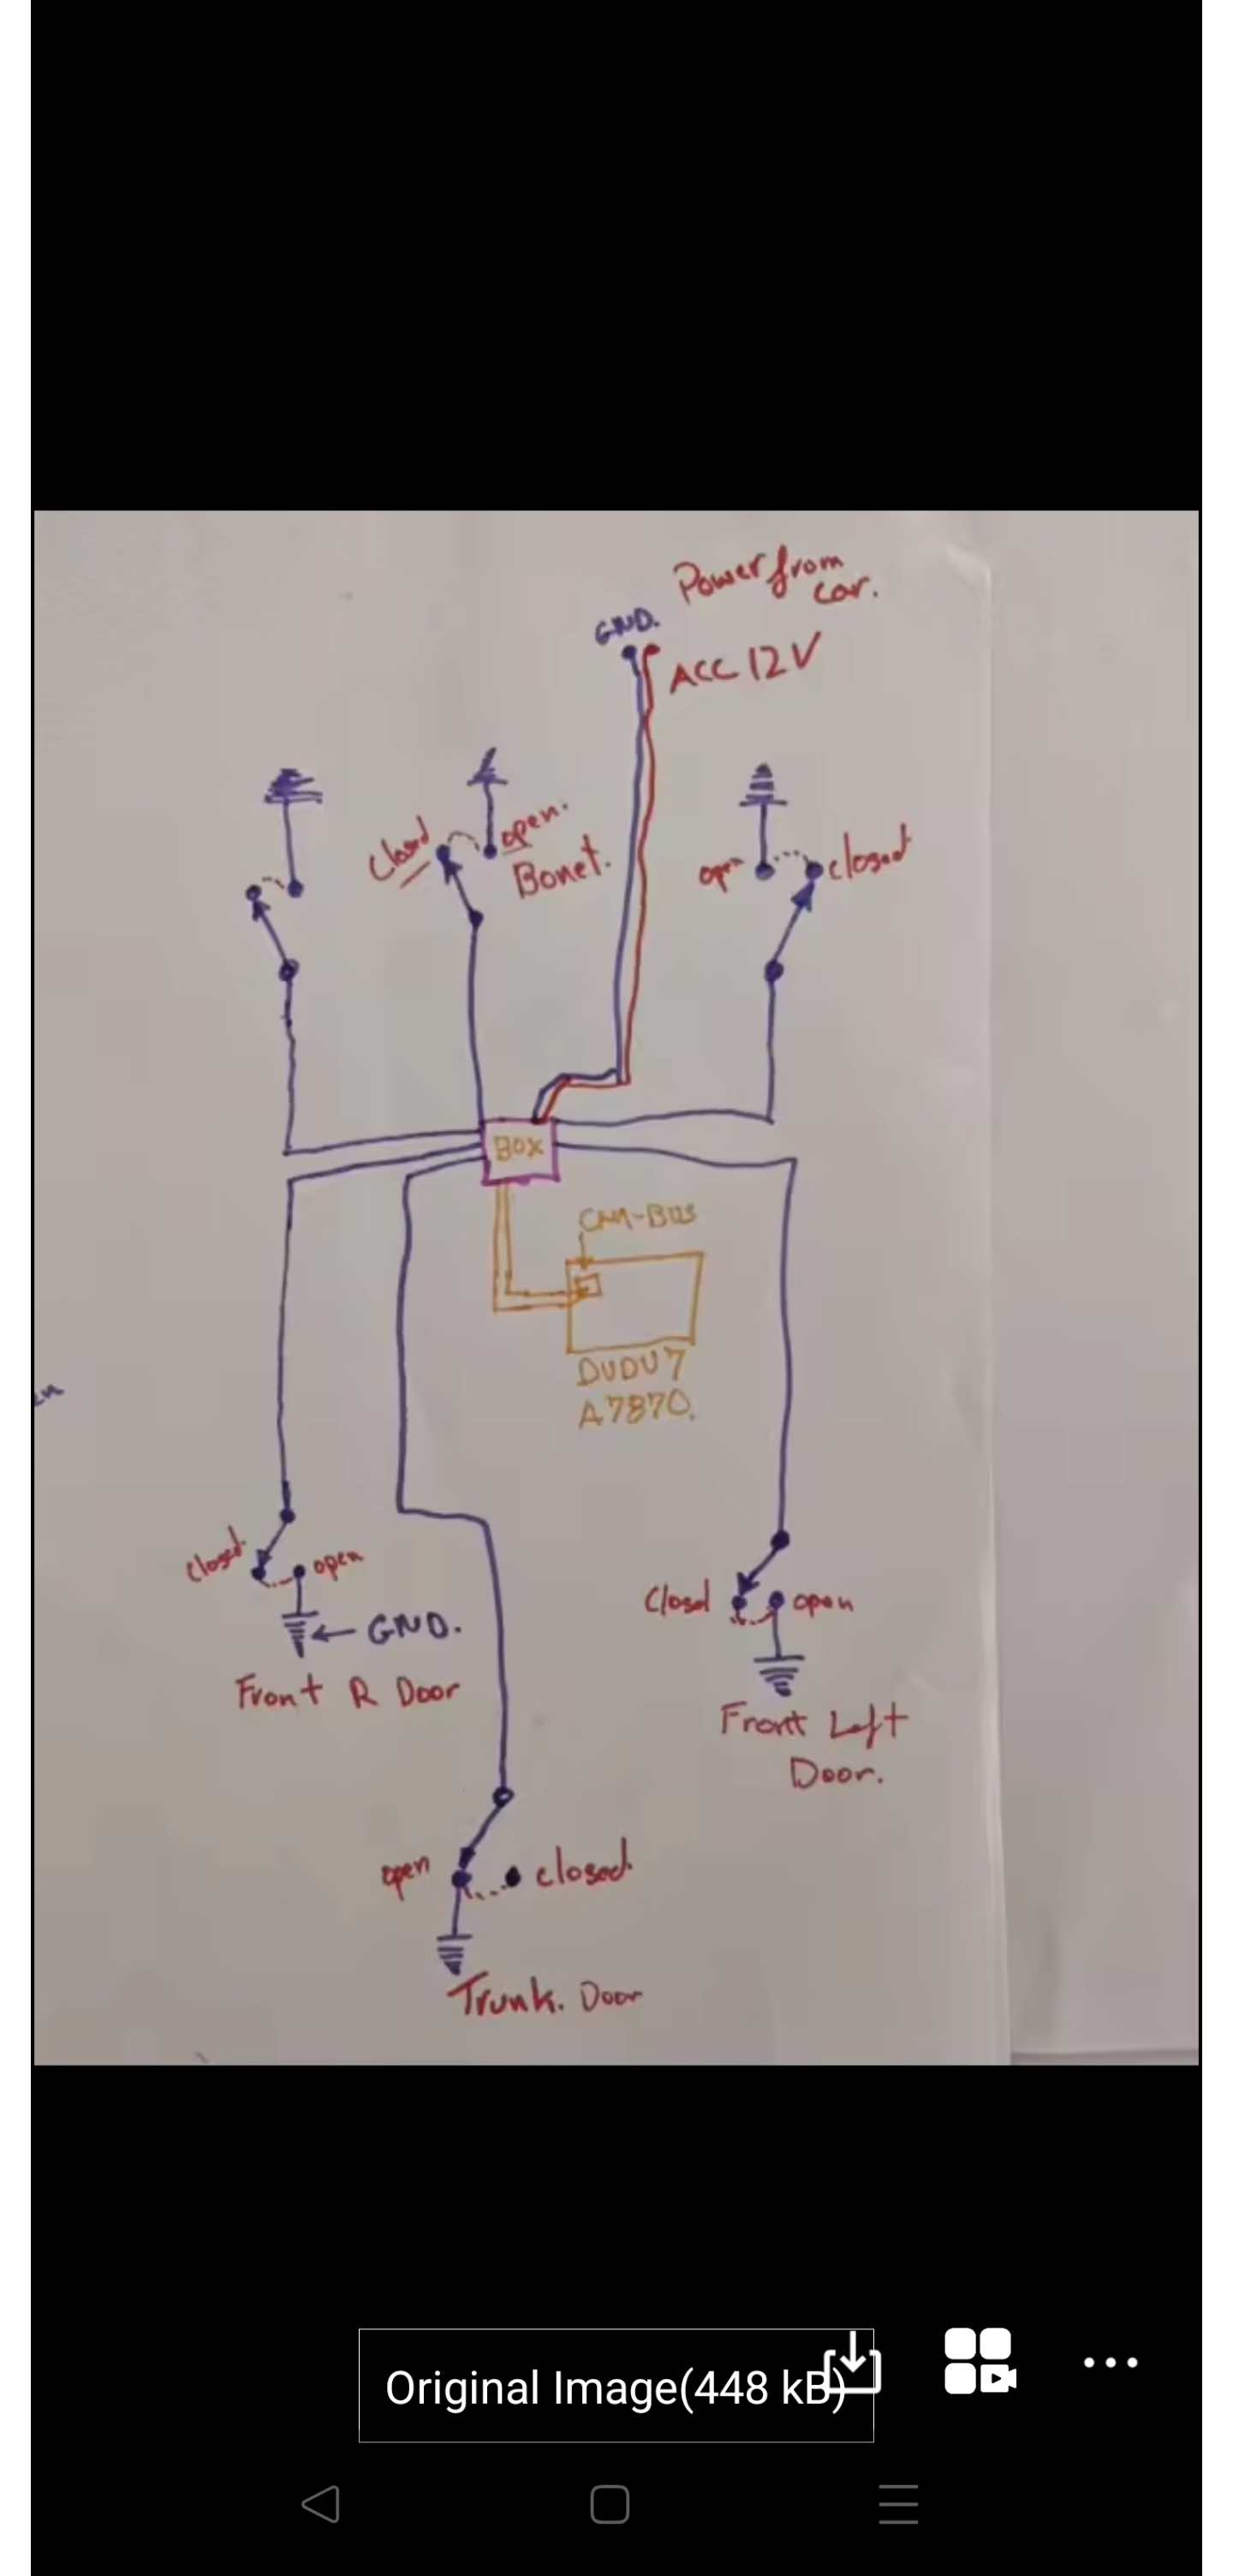 Power from
car.
GND.
ACC 12V
Closed
open.
Bonet.
open
closed
BOX
CAN-BUS
DUDU7
A7870.
closed.
open
GND.
Front R Door
Closd
open
Front Left
Door.
open
closed.
Trunk. Door
Original Image(448 kB)